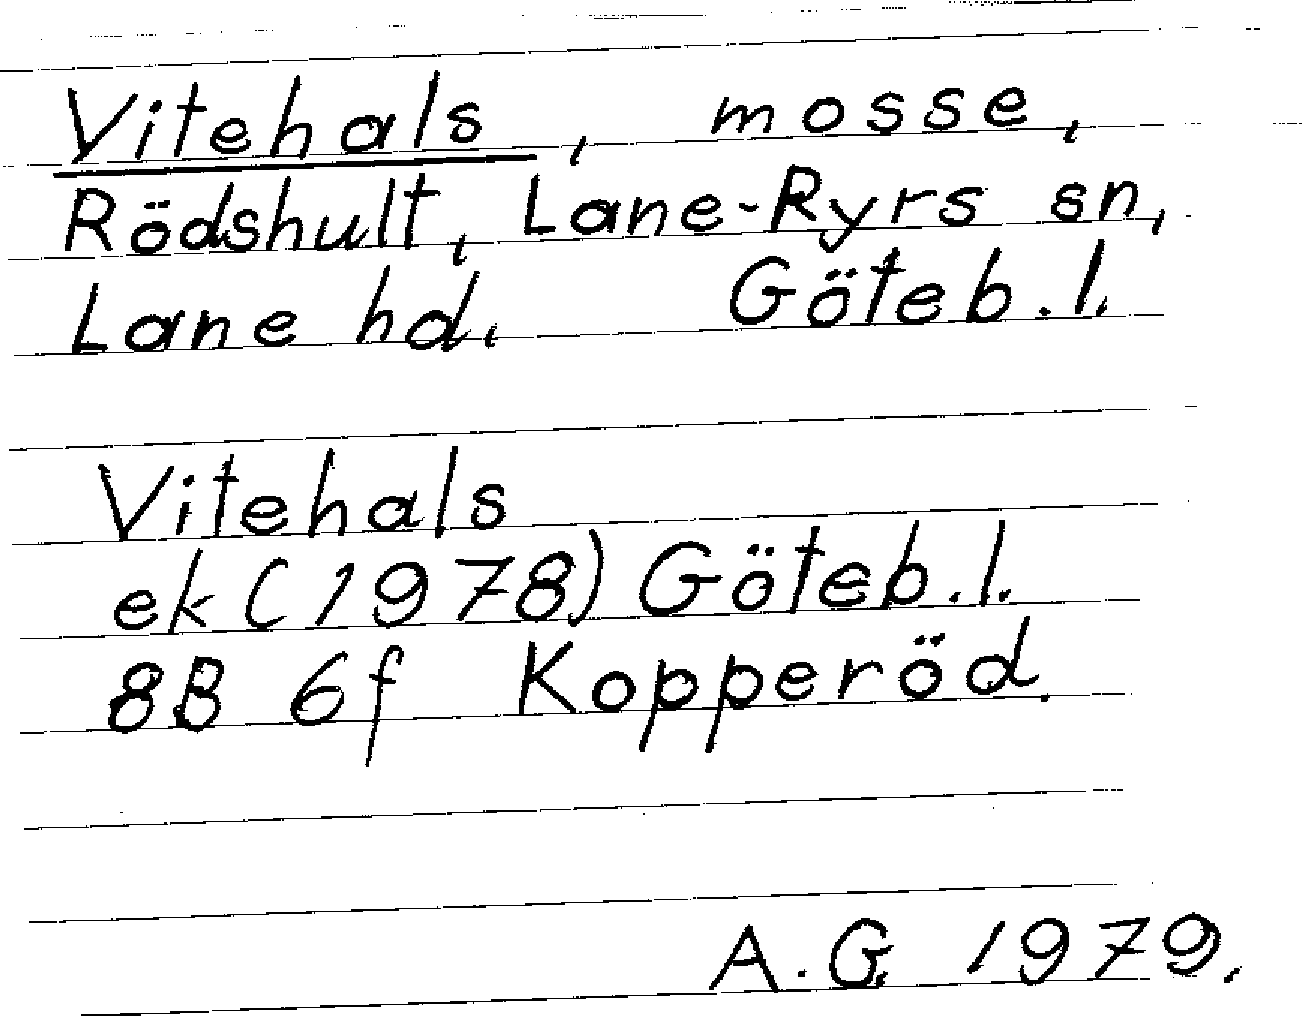 Vitehals, mosse,
Rödshult, Lane-Ryrs sn,
Lane hd. Göteb.l.
Vitehals
ek (1978) Göteb.l.
8B 6f Kopperöd.
A.G. 1979.